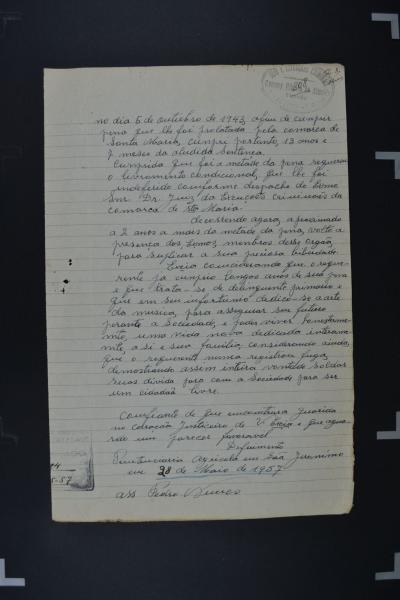 no dia 5 de outubro de 1943, afim de cumprir
pena que lhe foi prolatada pela comarca de
Santa Maria, cumpri portanto, 13 anos e
7 meses da aludida sentença.
Cumprida que foi a metade da pena requereu
o livramento condicional, que lhe foi
indeferido conforme despacho do Exmo
Snr. Dr. Juiz da Execuções Criminais da
comarca de Sta Maria.
decorrendo agora, aproximado
a 2 anos a mais da metade da pena, volto a
presença dos Exmos, membros desse Orgão,
para suplicar a sua preciosa
considerando que o reque
rente já cumpriu longos anos de sua pena
e que trata-se de delinquente primario e
que em seu infortunio dedico-se a arte
da musica, para assegurar seu futuro
perante a Sociedade, e poder viver honestame
nte, uma vida nova dedicada inteirame
nte, a si e sua familia, considerando ainda,
que o requerente nunca registrou fuga,
demostrando assim inteira vontade soldar
suas divida para com a Sociedade para ser
um cidadão livre.
Confiante de que encontrara guarida
no coração Justiceiro de V. Excia e que agua
rdo um parecer favoravel
Deferimento
Penitenciaria Agricola em São Jeronimo
em 28 de Maio de 1957
ass Pedro Nunes